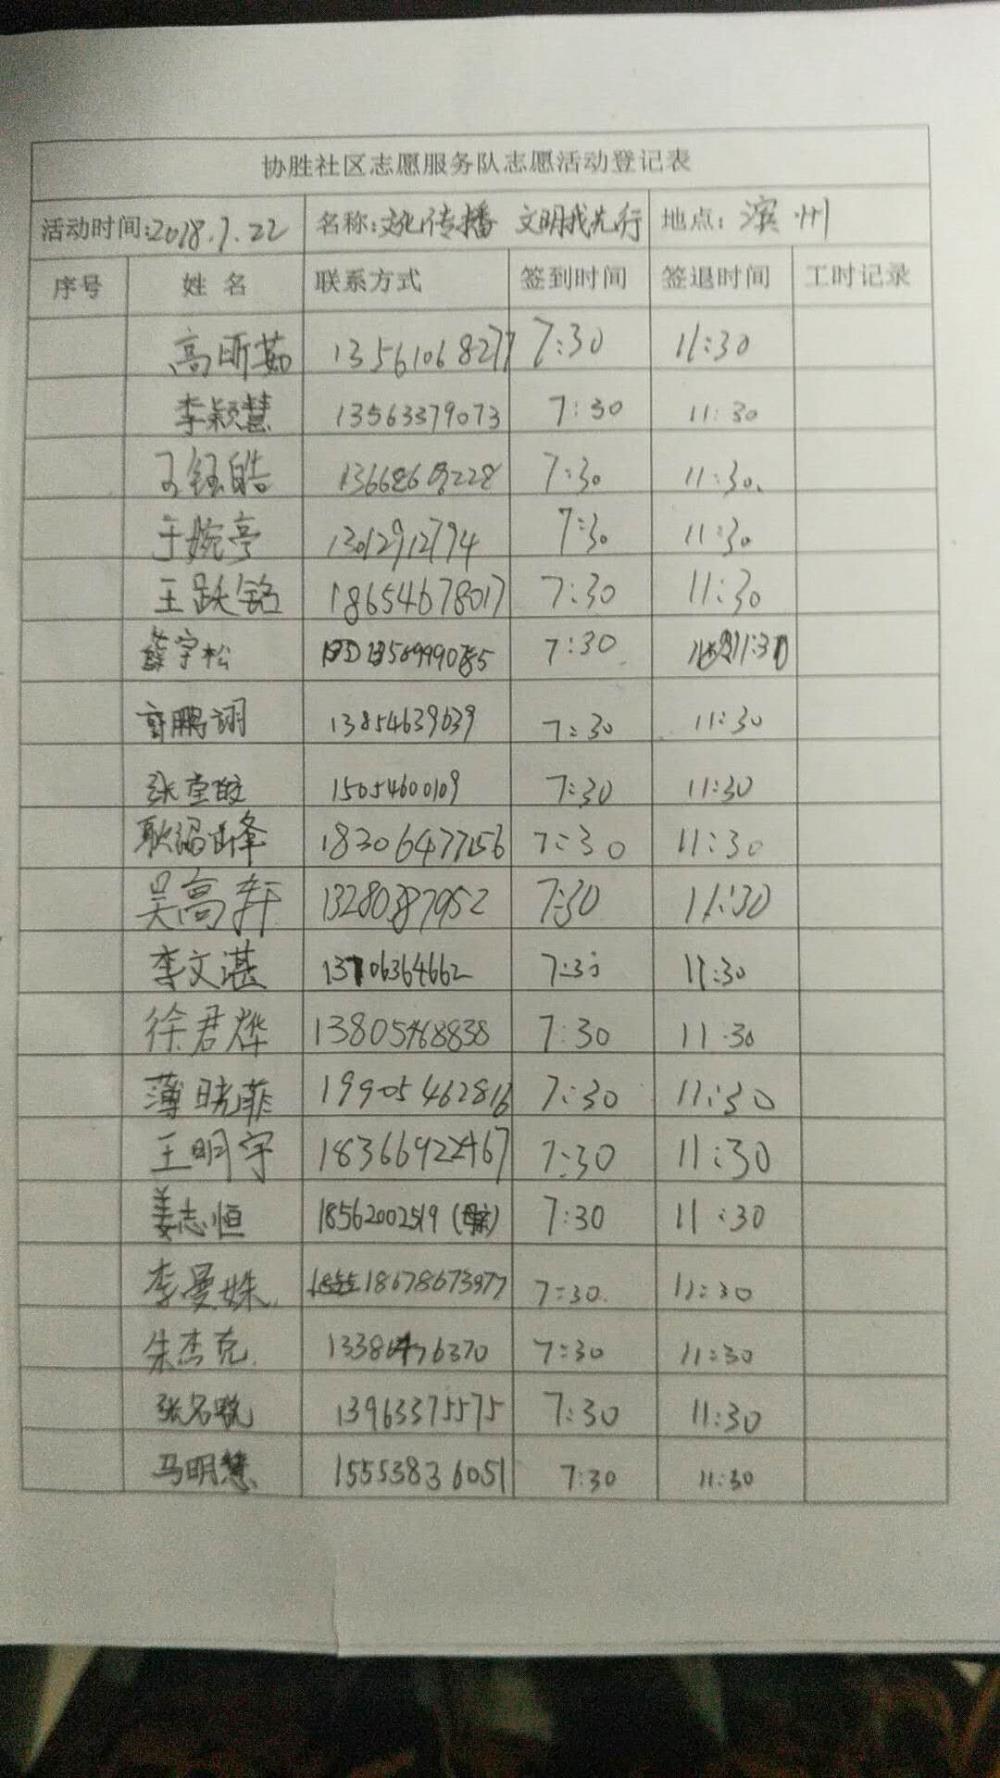 协胜社区志愿服务队志愿活动登记表
活动时间:2018.7.22 名称:文化传播 文明我先行 地点:滨州
序号 姓名 联系方式 签到时间 签退时间 工时记录
高昕茹 13561068277 7:30 11:30
李颖慧 13563379073 7:30 11:30
7:30 11:30
于婉亭 13012912794 7:30 11:30
王跃铭 18654678017 7:30 11:30
薛宇松 7:30 11:30
鹏翊 13854639639 7:30 11:30
张 15054600109 7:30 11:30
耿 18306477156 7:30 11:30
吴高轩 13280387952 7:30 11:30
李文湛 13706364662 7:30 11:30
徐君烨 13805468838 7:30 11:30
薄晓菲 19905462816 7:30 11:30
王明宇 18366922467 7:30 11:30
姜志恒 18562002519 7:30 11:30
李曼姝 18678673977 7:30 11:30
朱杰克 7:30 11:30
张名 13963375575 7:30 11:30
马明慧 15553836051 7:30 11:30